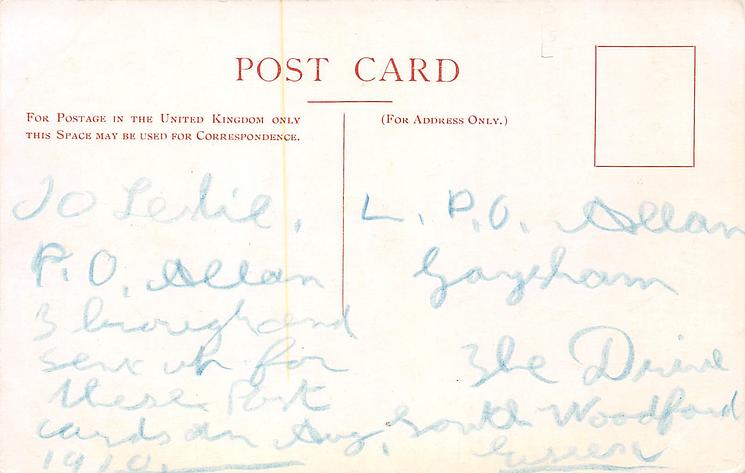 POST CARD
FOR POSTAGE IN THE UNITED KINGDOM ONLY
THIS SPACE MAY BE USED FOR CORRESPONDENCE.
(FOR ADDRESS ONLY.)
To Leslie.
P.O. Allan
I brough and
sent up for
these Post
cards on Aug,
1910.
L. P.O. Allan
Gaysham
The Drive
South Woodford
Essex